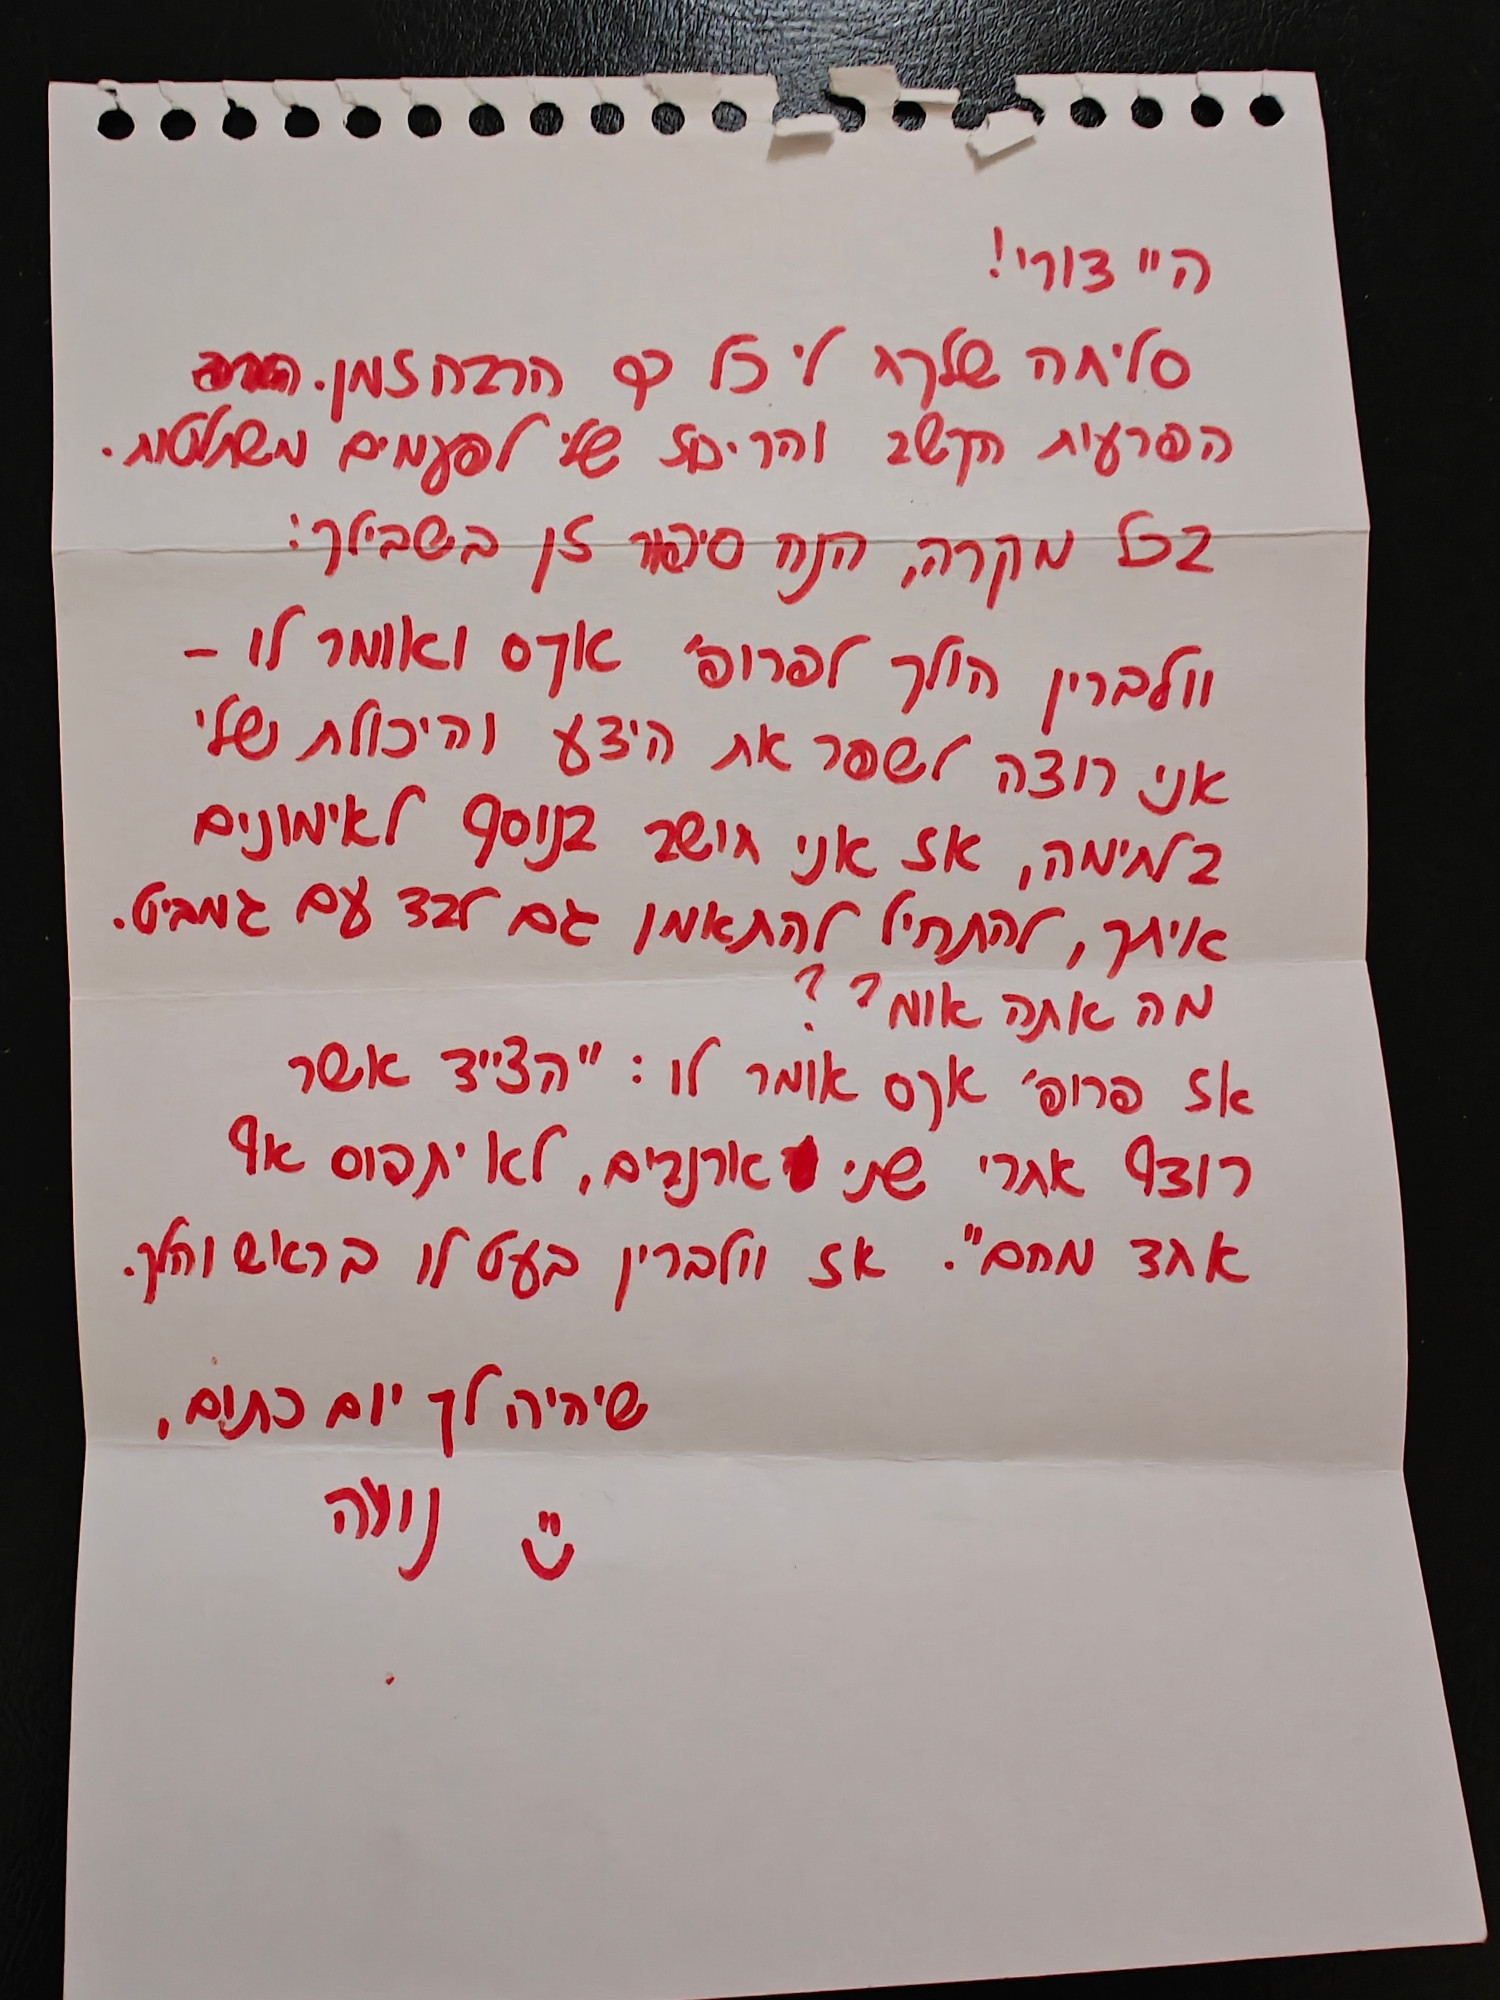 היי צורי!
סליחה שלקח לי כל כך הרבה זמן.
הפרעות הקשב והריכוז שלי לפעמים משתלטות.
בכל מקרה, הנה סיפור זן בשבילך:
וולברין הולך לפרופ' אקס ואומר לו –
אני רוצה לשפר את הידע והיכולת שלי
בלחימה, אז אני חושב בנוסף לאימונים
איתך, להתחיל להתאמן גם לבד עם גמביט.
מה אתה אומר?
אז פרופ' אקס אומר לו: "הצייד אשר
רודף אחרי שני ארנבים, לא יתפוס אף
אחד מהם". אז וולברין בעט לו בראש והלך.
שיהיה לך יום כתום,
נועה